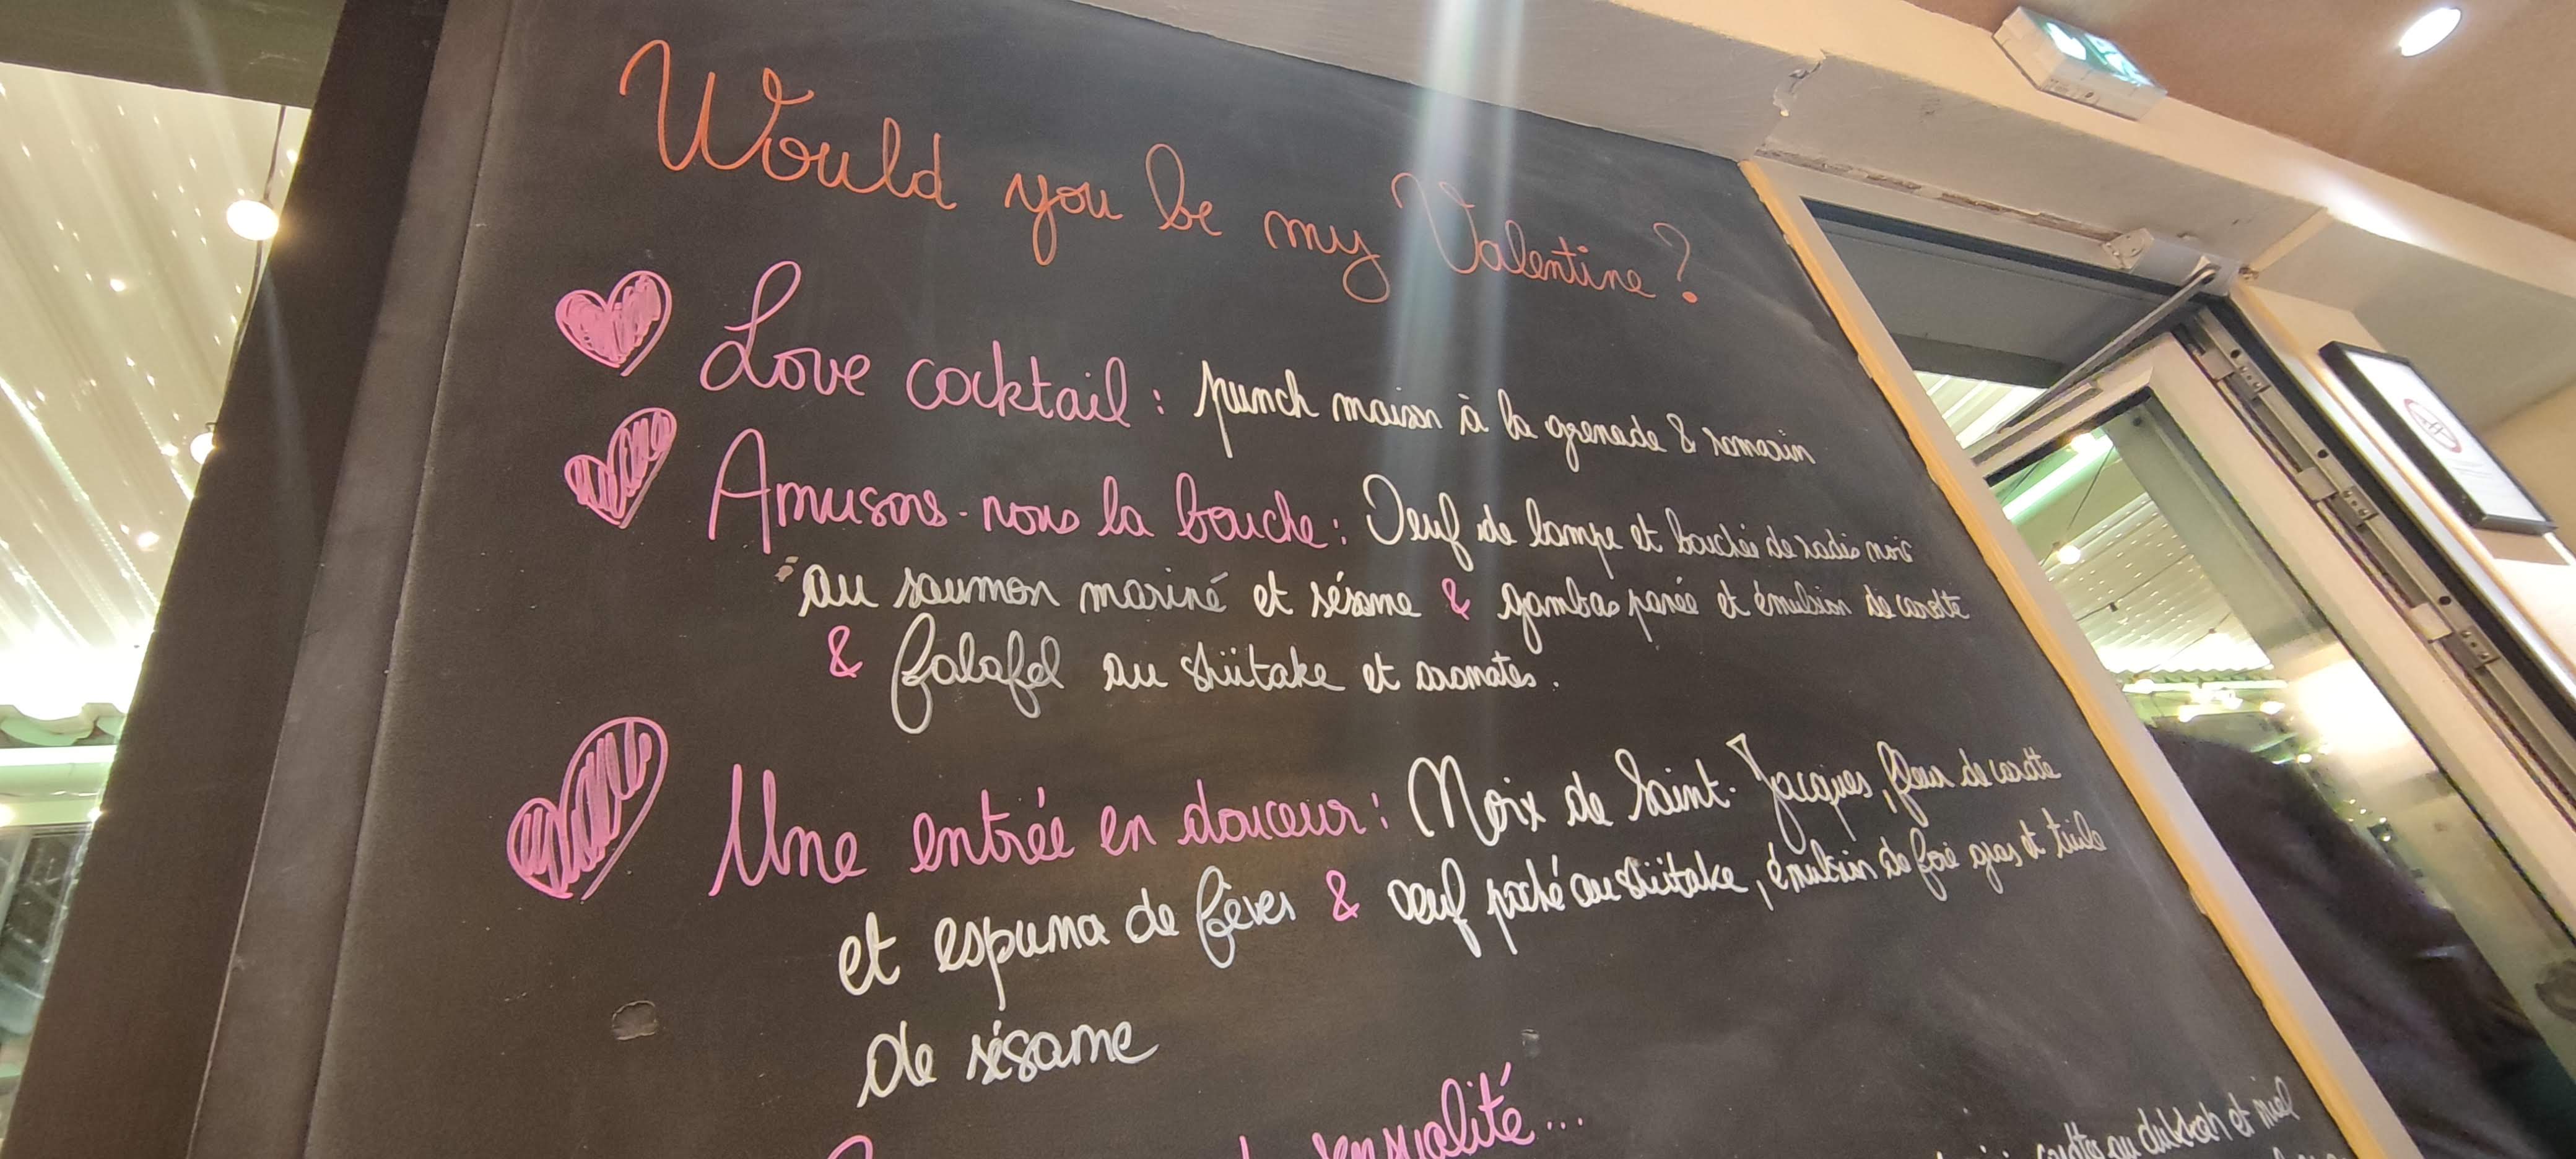 Would you be my Valentine ?
Love cocktail : punch maison à la grenade & romarin
Amusons-nous la bouche : Oeuf de lompe et bouchée de radis noir
au saumon mariné et sésame & gambas panée et émulsion de carotte
& falafel au shiitake et aromates.
Une entrée en douceur : Noix de Saint-Jacques, fleur de carotte
et espuma de fèves & oeuf poché au shiitake, émulsion de foie gras et tuile
de sésame
sensualité...
au dukkah et miel